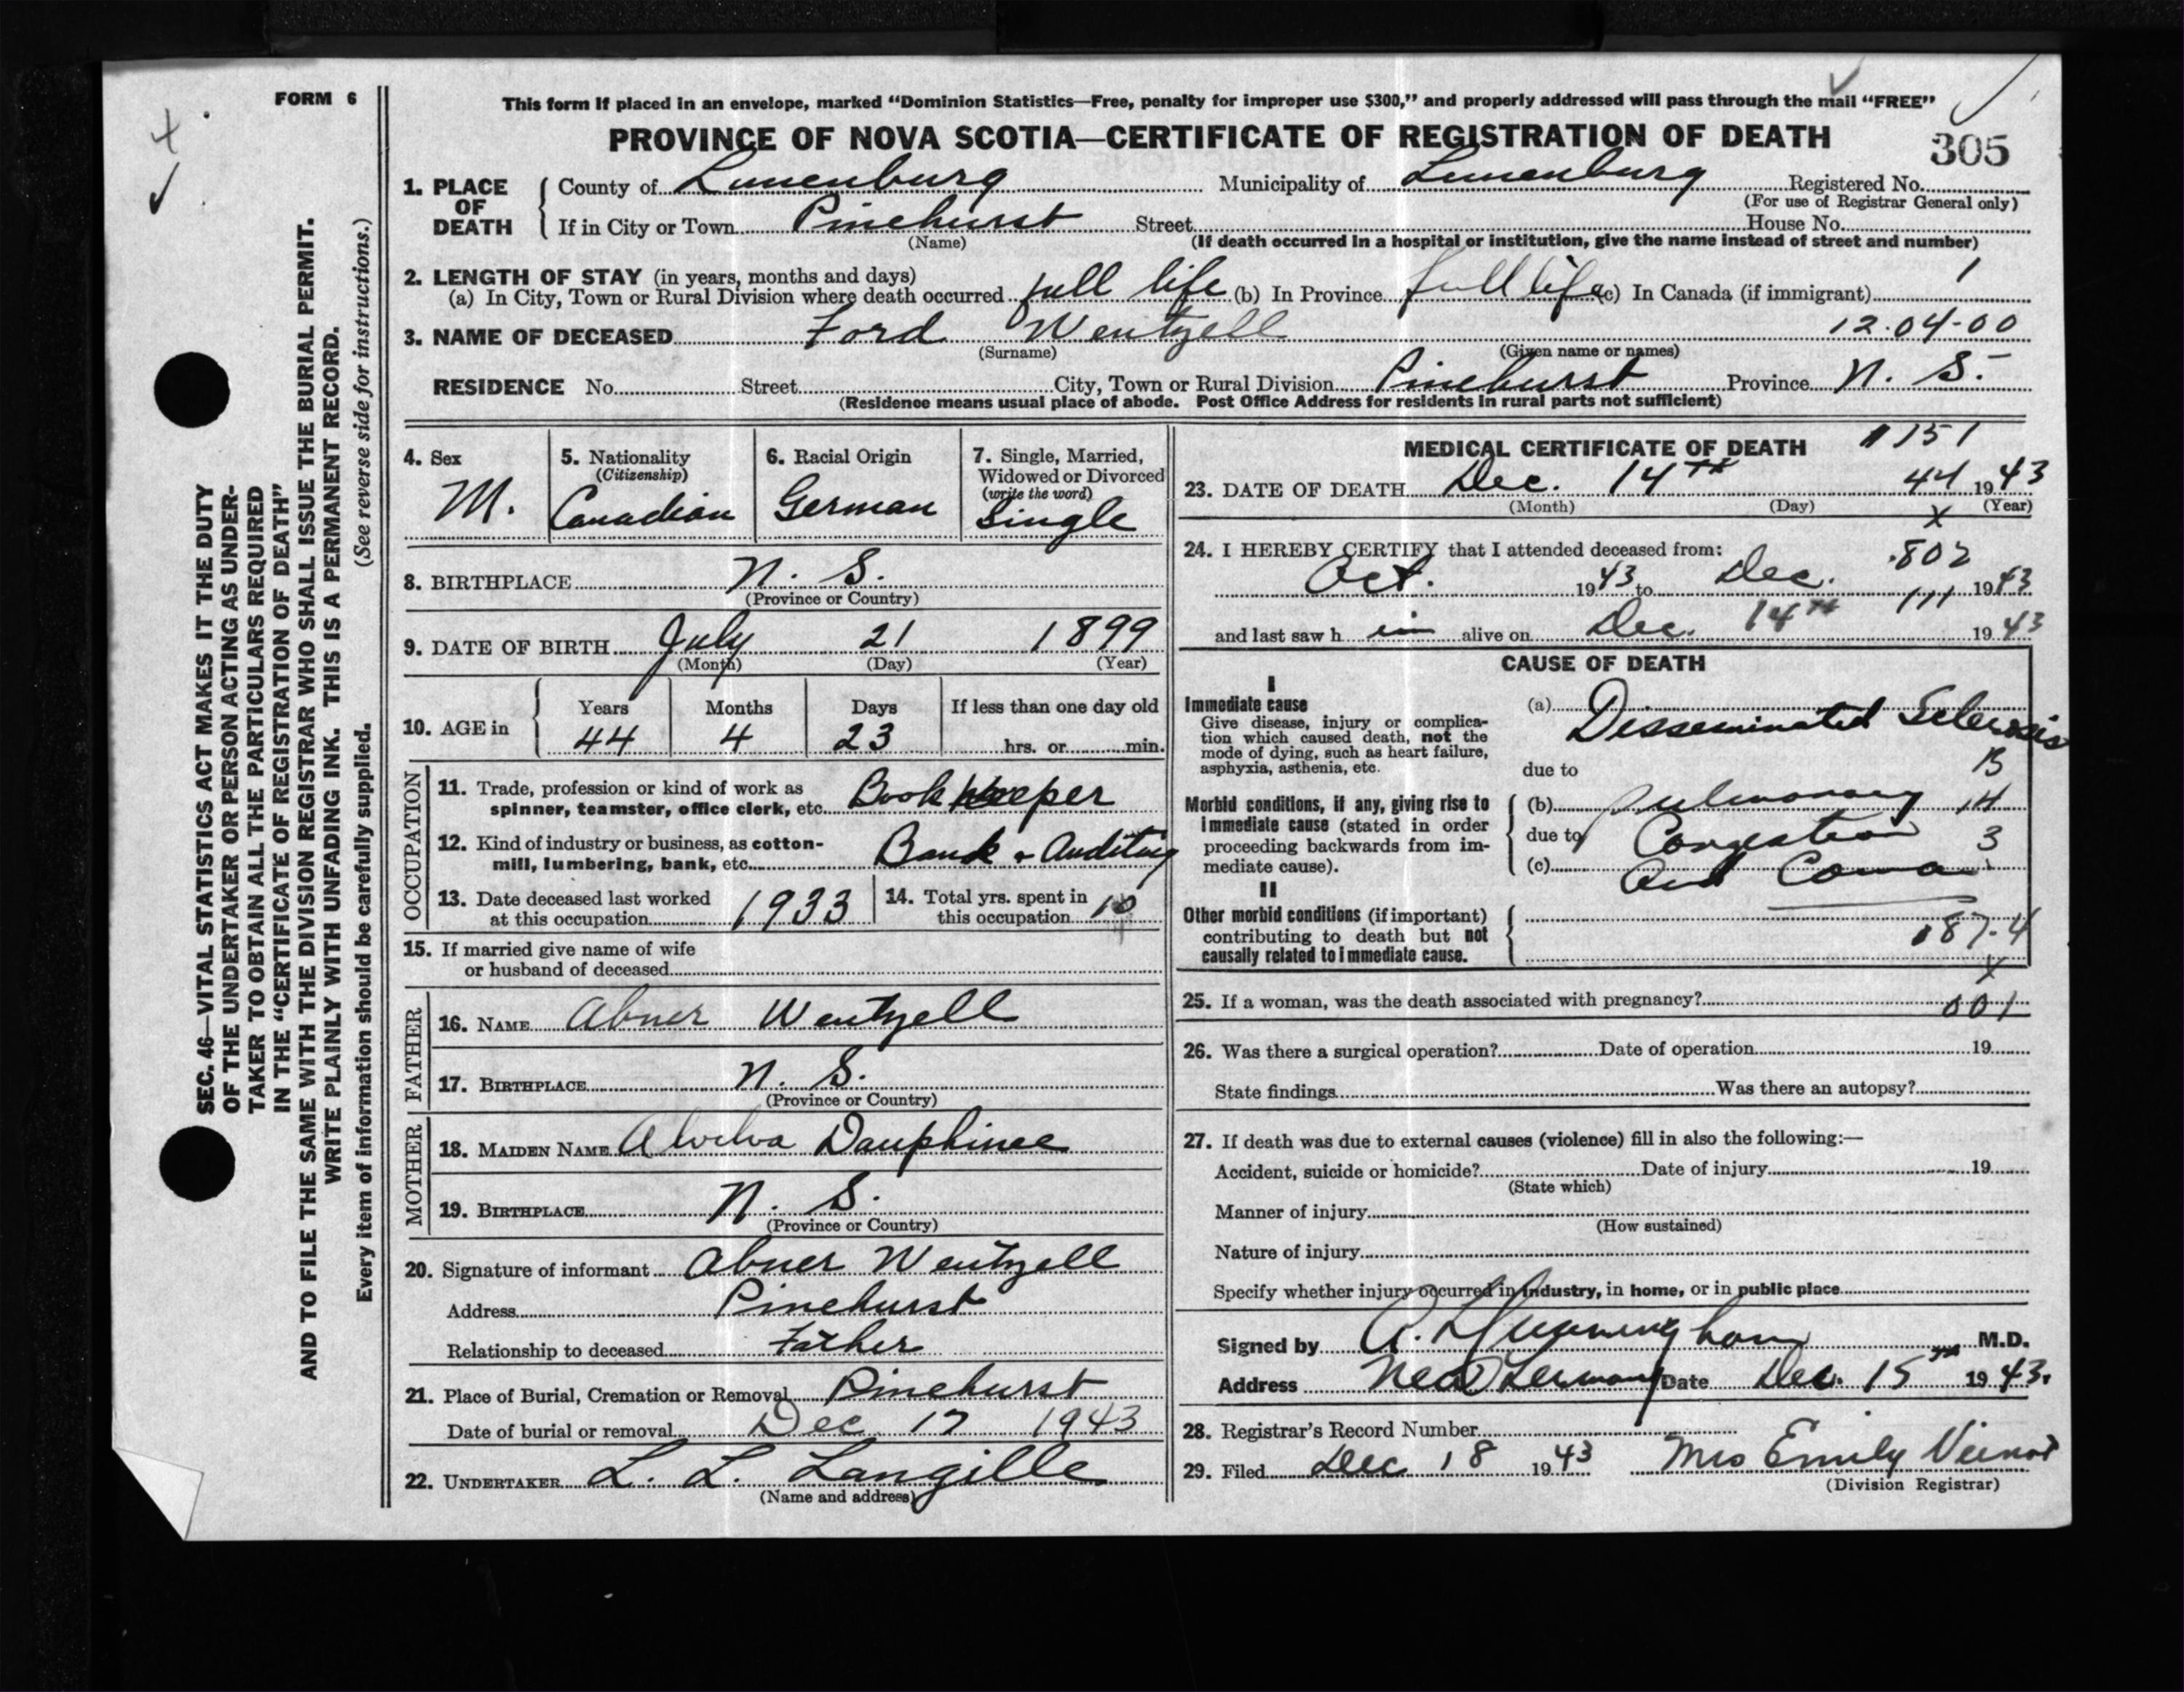 FORM 6
This form if placed in an envelope, marked “Dominion Statistics—Free, penalty for improper use $300,” and properly addressed will pass through the mail “FREE”
PROVINCE OF NOVA SCOTIA—CERTIFICATE OF REGISTRATION OF DEATH
305
1. PLACE OF DEATH County of Lunenburg Municipality of Lunenburg Registered No.
(For use of Registrar General only)
If in City or Town Pinehurst Street House No.
(Name) (If death occurred in a hospital or institution, give the name instead of street and number)
2. LENGTH OF STAY (in years, months and days)
(a) In City, Town or Rural Division where death occurred full life (b) In Province full life (c) In Canada (if immigrant) 1
3. NAME OF DECEASED Ford Wentzell 12-04-00
(Surname) (Given name or names)
RESIDENCE No. Street City, Town or Rural Division Pinehurst Province N. S.
(Residence means usual place of abode. Post Office Address for residents in rural parts not sufficient)
4. Sex
M.
5. Nationality
(Citizenship)
Canadian
6. Racial Origin
German
7. Single, Married,
Widowed or Divorced
(write the word)
Single
8. BIRTHPLACE N. S.
(Province or Country)
9. DATE OF BIRTH July 21 1899
(Month) (Day) (Year)
10. AGE in
Years Months Days If less than one day old
44 4 23 hrs. or min.
OCCUPATION
11. Trade, profession or kind of work as
spinner, teamster, office clerk, etc. Bookkeeper
12. Kind of industry or business, as cotton-
mill, lumbering, bank, etc. Bank & Auditing
13. Date deceased last worked
at this occupation 1933
14. Total yrs. spent in
this occupation 10
15. If married give name of wife
or husband of deceased
FATHER
16. NAME Abner Wentzell
17. BIRTHPLACE N. S.
(Province or Country)
MOTHER
18. MAIDEN NAME Dauphinee
19. BIRTHPLACE N. S.
(Province or Country)
20. Signature of informant Abner Wentzell
Address Pinehurst
Relationship to deceased Father
21. Place of Burial, Cremation or Removal Pinehurst
Date of burial or removal Dec 17 1943
22. UNDERTAKER L. L. Langille
(Name and address)
MEDICAL CERTIFICATE OF DEATH 1151
23. DATE OF DEATH Dec. 14TH 44 1943
(Month) (Day) (Year)
x
24. I HEREBY CERTIFY that I attended deceased from:
802
Oct. 1943 to Dec. 1943
111
and last saw h im alive on Dec. 14TH 1943
CAUSE OF DEATH
I
Immediate cause
Give disease, injury or complica-
tion which caused death, not the
mode of dying, such as heart failure,
asphyxia, asthenia, etc.
(a) Disseminated Sclerosis
due to
Morbid conditions, if any, giving rise to
immediate cause (stated in order
proceeding backwards from im-
mediate cause).
(b) Pulmonary 14
due to Congestion 3
(c) and Coma
II
Other morbid conditions (if important)
contributing to death but not
causally related to immediate cause.
87-4
x
25. If a woman, was the death associated with pregnancy? 001
26. Was there a surgical operation? Date of operation 19
State findings Was there an autopsy?
27. If death was due to external causes (violence) fill in also the following:—
Accident, suicide or homicide? Date of injury 19
(State which)
Manner of injury
(How sustained)
Nature of injury
Specify whether injury occurred in industry, in home, or in public place
Signed by M.D.
Address New Germany Date Dec. 15TH 1943.
28. Registrar's Record Number
29. Filed Dec 18 1943 Mrs Emily Veinot
(Division Registrar)
SEC. 46—VITAL STATISTICS ACT MAKES IT THE DUTY
OF THE UNDERTAKER OR PERSON ACTING AS UNDER-
TAKER TO OBTAIN ALL THE PARTICULARS REQUIRED
IN THE “CERTIFICATE OF REGISTRATION OF DEATH”
AND TO FILE THE SAME WITH THE DIVISION REGISTRAR WHO SHALL ISSUE THE BURIAL PERMIT.
WRITE PLAINLY WITH UNFADING INK. THIS IS A PERMANENT RECORD.
Every item of information should be carefully supplied. (See reverse side for instructions.)